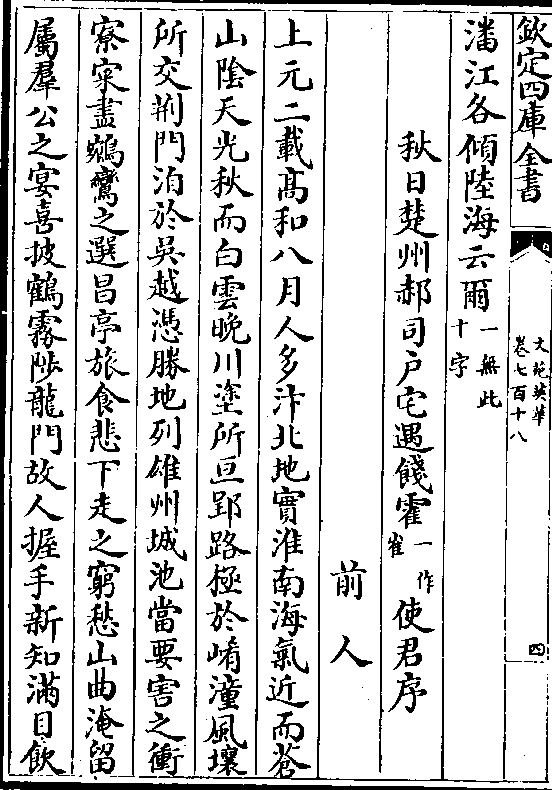 欽定四庫全書
文苑英華
卷七百十八
四
潘江各傾陸海云爾一無此十字
秋日楚州郝司戸宅遇餞霍一作崔使君序
前人
上元二載髙和八月人多汴北地實淮南海氣近而蒼
山隂天光秋而白雲晚川塗所亘郢路極於崤潼風壤
所交荆門洎於吳越憑勝地列雄州城池當要害之衝
寮寀盡鵷鸞之選昌亭旅食悲下走之窮愁山曲淹留
屬羣公之宴喜披鶴霧陟龍門故人握手新知滿目飲